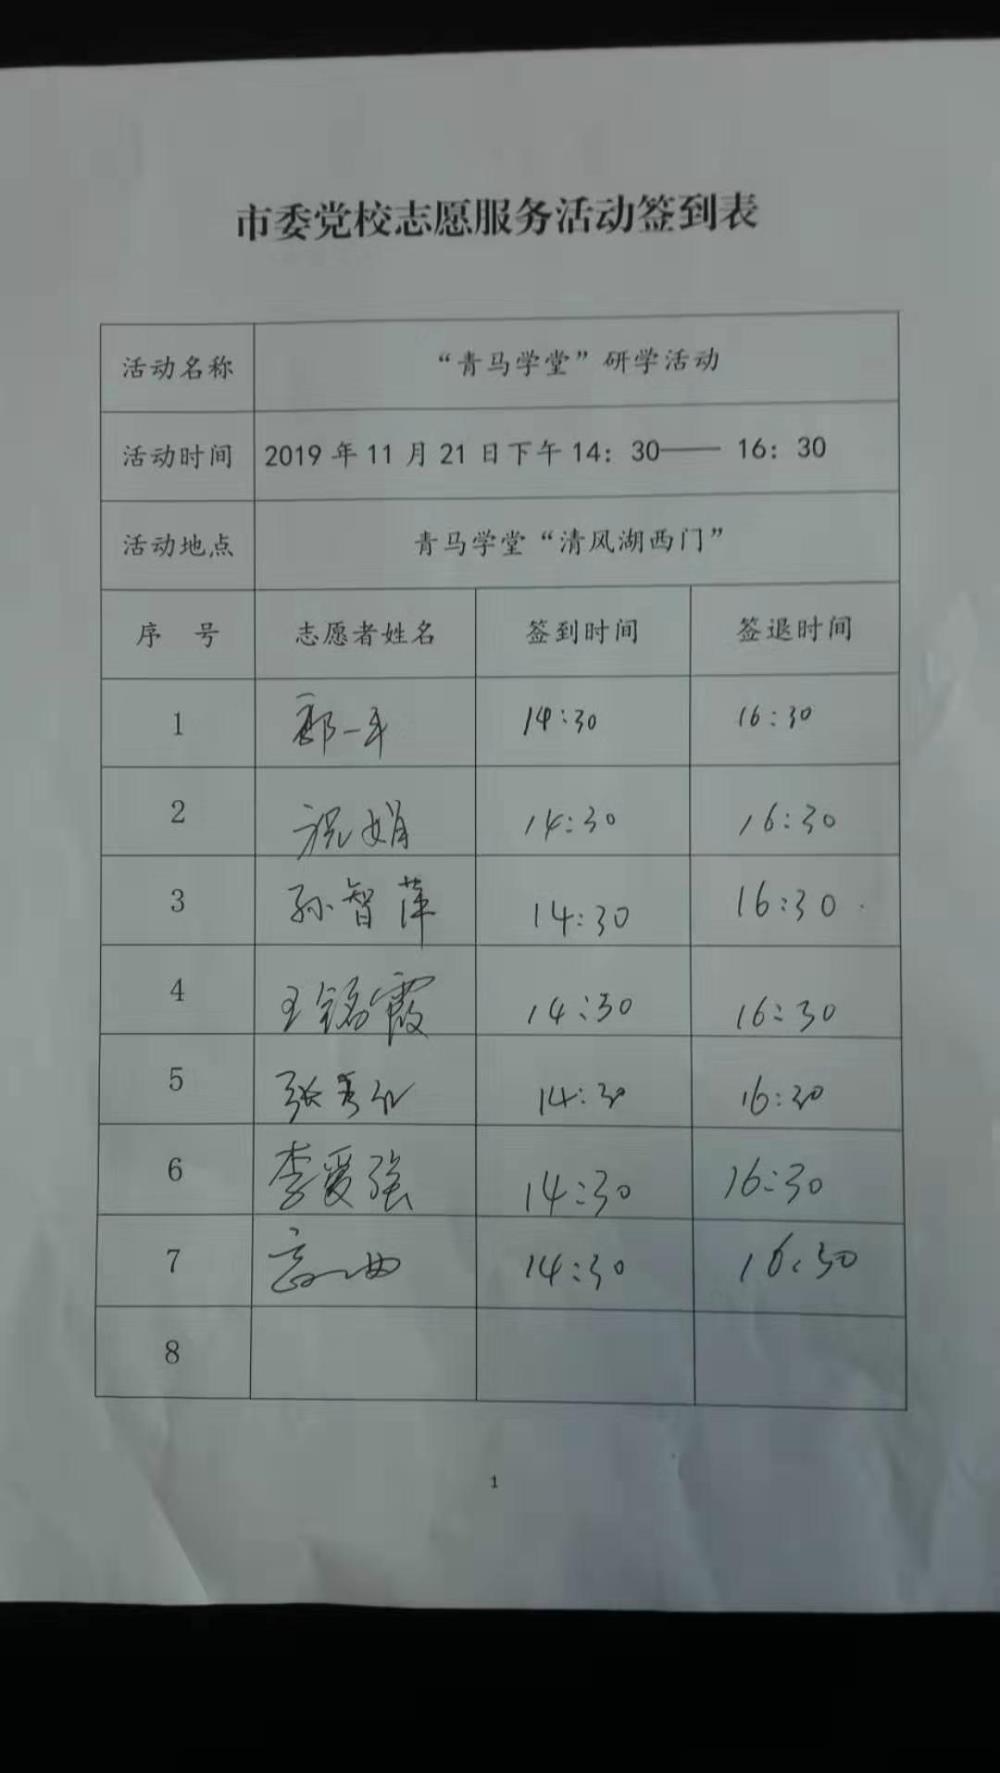 市委党校志愿服务活动签到表
活动名称 “青马学堂”研学活动
活动时间 2019年11月21日下午14：30—— 16：30
活动地点 青马学堂“清风湖西门”
序 号 志愿者姓名 签到时间 签退时间
1 一平 14:30 16:30
2 祝娟 14:30 16:30
3 孙智萍 14:30 16:30
4 王铭霞 14:30 16:30
5 张秀 14:30 16:30
6 李爱强 14:30 16:30
7 14:30 16:30
8
1